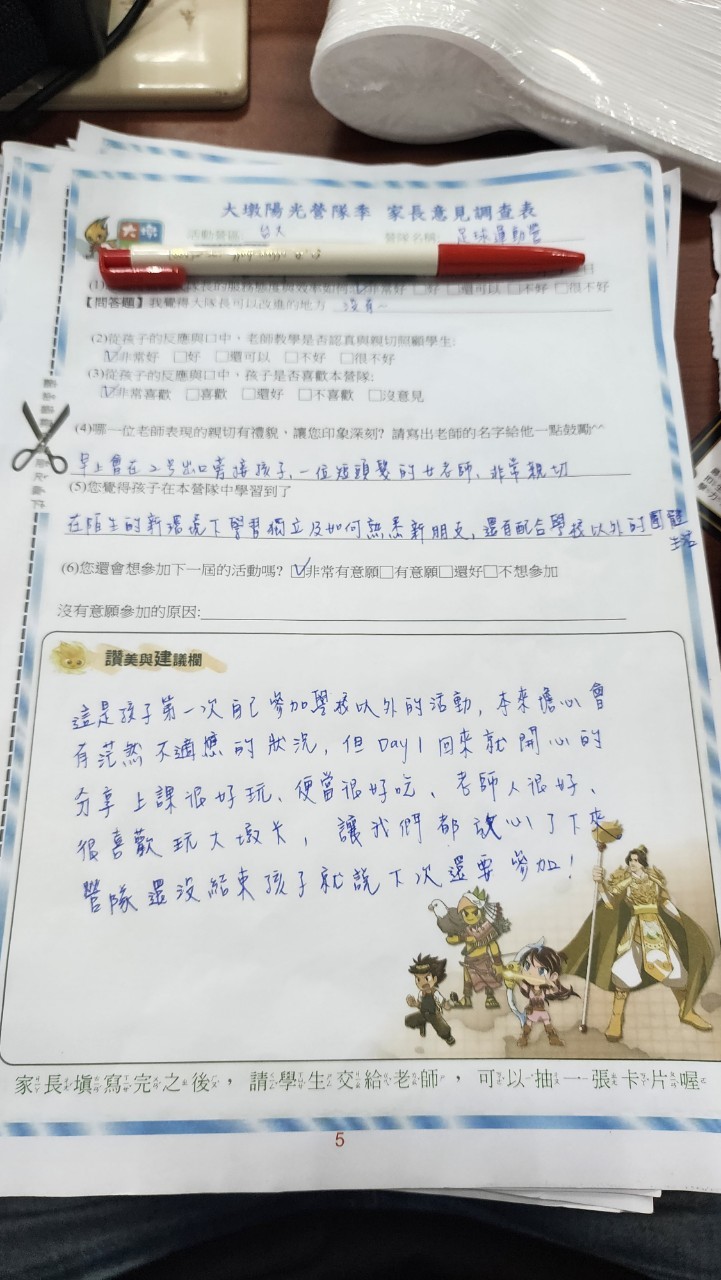 大墩陽光營隊季 家長意見調查表
大墩 活動營區: 台大 營隊名稱: 足球運動營
(1) 隊長的服務態度與效率如何: ☑非常好 □好 □還可以 □不好 □很不好
【問答題】我覺得大隊長可以改進的地方 沒有~
(2)從孩子的反應與口中，老師教學是否認真與親切照顧學生:
☑非常好 □好 □還可以 □不好 □很不好
(3)從孩子的反應與口中，孩子是否喜歡本營隊:
☑非常喜歡 □喜歡 □還好 □不喜歡 □沒意見
(4)哪一位老師表現的親切有禮貌，讓您印象深刻? 請寫出老師的名字給他一點鼓勵^^
早上會在2号出口旁接孩子、一位短頭髮的女老師、非常親切
(5)您覺得孩子在本營隊中學習到了
在陌生的新環境下學習獨立及如何熟悉新朋友，還有配合學校以外的團體
生活
(6)您還會想參加下一屆的活動嗎? ☑非常有意願□有意願□還好□不想參加
沒有意願參加的原因:
讚美與建議欄
這是孩子第一次自己參加學校以外的活動，本來擔心會
有茫然不適應的狀況，但Day1回來就開心的
分享上課很好玩、便當很好吃、老師人很好、
很喜歡玩大墩卡，讓我們都放心了下來
營隊還沒結束孩子就說下次還要參加！
家長填寫完之後，請學生交給老師，可以抽一張卡片喔
5